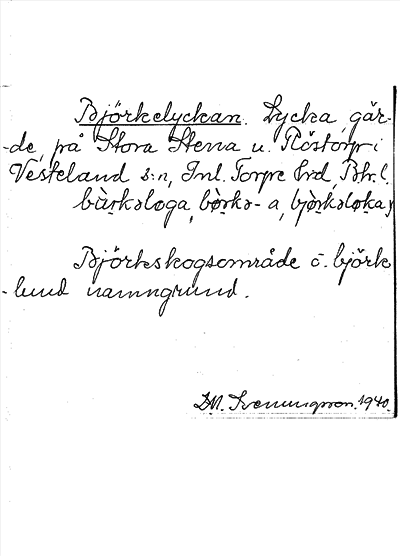 Björkelyckan. Lycka, går-
-de, på Stora Stena u. Röstorp i
Vesteland s:n, Inl. Torpe hrd, Bhl.
bùrkəloga, bə̀rkə- a, bjòrkəloka,
Björkskogsområde o. björk
-lund namngrund.
D.M. Svenungsson. 1940.